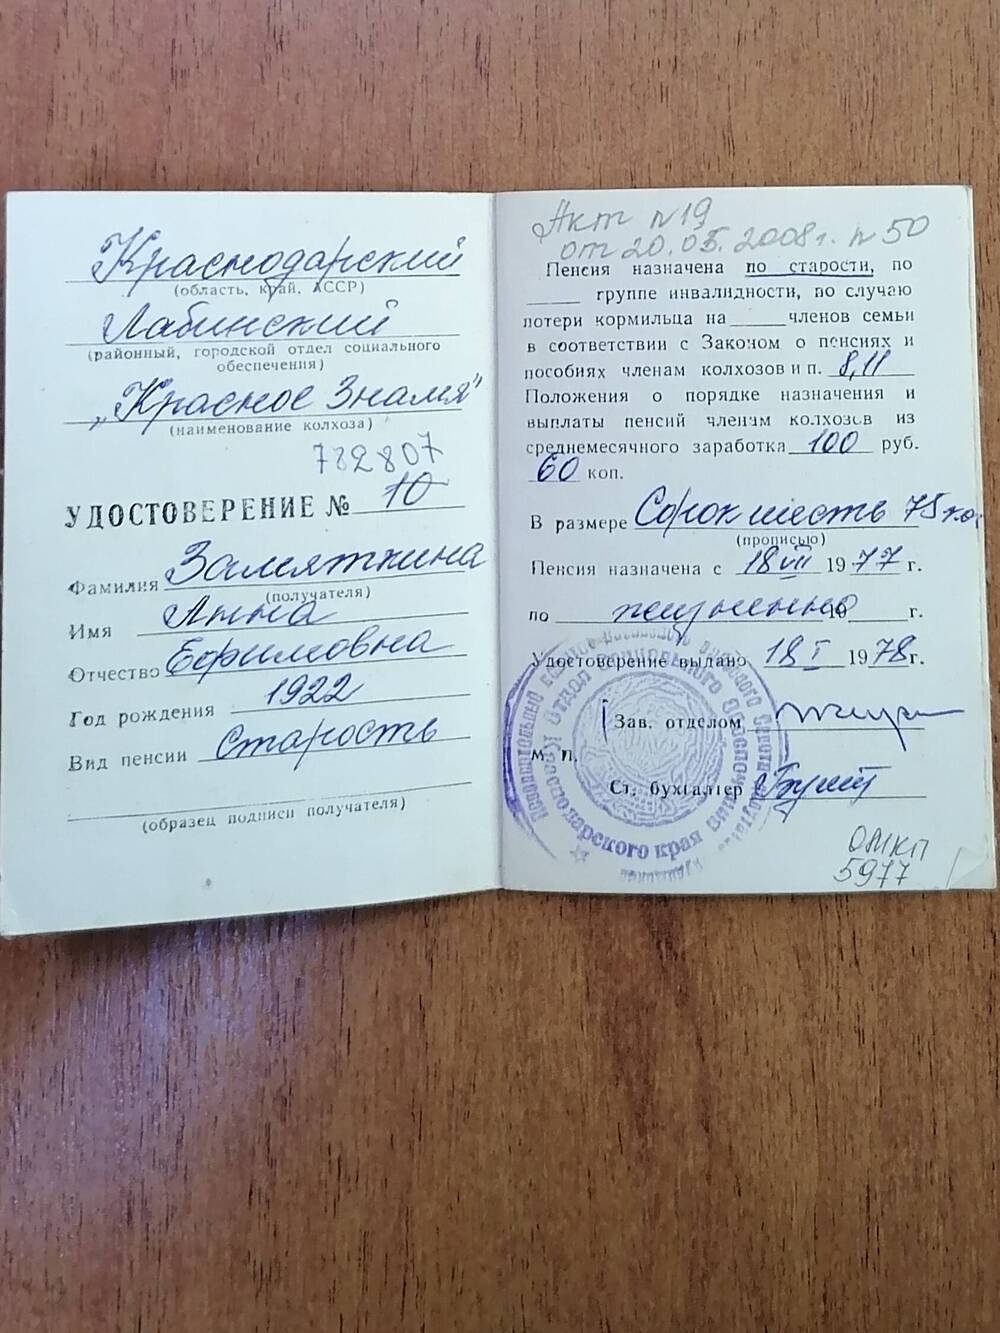 Краснодарский
(область, край, АССР)
Лабинский
(районный, городской отдел социального
обеспечения)
„Красное Знамя"
(наименование колхоза)
782807
УДОСТОВЕРЕНИЕ № 10
Фамилия Замяткина
(получателя)
Имя Анна
Отчество Ефимовна
Год рождения 1922
Вид пенсии старость
(образец подписи получателя)
Акт №19
от 20.05.2008г. п 50
Пенсия назначена по старости, по
_____ группе инвалидности, по случаю
потери кормильца на _____ членов семьи
в соответствии с Законом о пенсиях и
пособиях членам колхозов и п. 8,11
Положения о порядке назначения и
выплаты пенсий членам колхозов из
среднемесячного заработка 100 руб.
60 коп.
В размере Сорок шесть 75 ко.
(прописью)
Пенсия назначена с 18 VII 1977 г.
по пожизненно 19 г.
Удостоверение выдано 18 I 1978 г.
Зав. отделом
М. П.
Ст. бухгалтер
Отдел Социального Обеспечения
Краснодарского края
ОМКП
5977